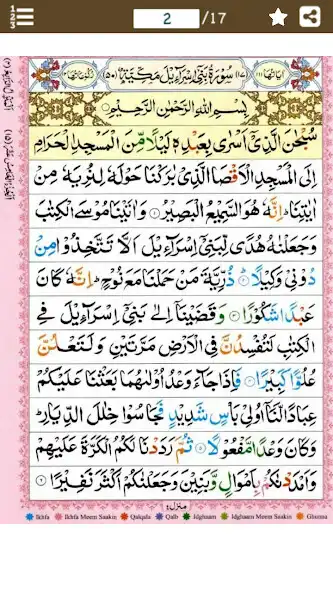 2 /17
اٰيَاتُهَا ١١١ (١٧) سُوْرَةُ بَنِيْٓ اِسْرَآءِيْلَ مَكِّيَّةٌ (٥٠) رُكُوْعَاتُهَا ١٢
بِسْمِ اللّٰهِ الرَّحْمٰنِ الرَّحِيْمِ
سُبْحٰنَ الَّذِيْٓ اَسْرٰى بِعَبْدِهٖ لَيْلًا مِّنَ الْمَسْجِدِ الْحَرَامِ
اِلَى الْمَسْجِدِ الْاَقْصَا الَّذِيْ بٰرَكْنَا حَوْلَهٗ لِنُرِيَهٗ مِنْ
اٰيٰتِنَا ؕ اِنَّهٗ هُوَ السَّمِيْعُ الْبَصِيْرُ ۝۱ وَاٰتَيْنَا مُوْسَى الْكِتٰبَ
وَجَعَلْنٰهُ هُدًى لِّبَنِيْٓ اِسْرَآءِيْلَ اَلَّا تَتَّخِذُوْا مِنْ
دُوْنِيْ وَكِيْلًا ۝۲ ذُرِّيَّةَ مَنْ حَمَلْنَا مَعَ نُوْحٍ ؕ اِنَّهٗ كَانَ
عَبْدًا شَكُوْرًا ۝۳ وَقَضَيْنَآ اِلٰى بَنِيْٓ اِسْرَآءِيْلَ فِي
الْكِتٰبِ لَتُفْسِدُنَّ فِي الْاَرْضِ مَرَّتَيْنِ وَلَتَعْلُنَّ
عُلُوًّا كَبِيْرًا ۝۴ فَاِذَا جَآءَ وَعْدُ اُوْلٰىهُمَا بَعَثْنَا عَلَيْكُمْ
عِبَادًا لَّنَآ اُولِيْ بَاْسٍ شَدِيْدٍ فَجَاسُوْا خِلٰلَ الدِّيَارِ ؕ
وَكَانَ وَعْدًا مَّفْعُوْلًا ۝۵ ثُمَّ رَدَدْنَا لَكُمُ الْكَرَّةَ عَلَيْهِمْ
وَاَمْدَدْنٰكُمْ بِاَمْوَالٍ وَّبَنِيْنَ وَجَعَلْنٰكُمْ اَكْثَرَ نَفِيْرًا ۝۶
منزل ۴
Ikhfa Ikhfa Meem Saakin Qalqala Qalb Idghaam Idghaam Meem Saakin Ghunna